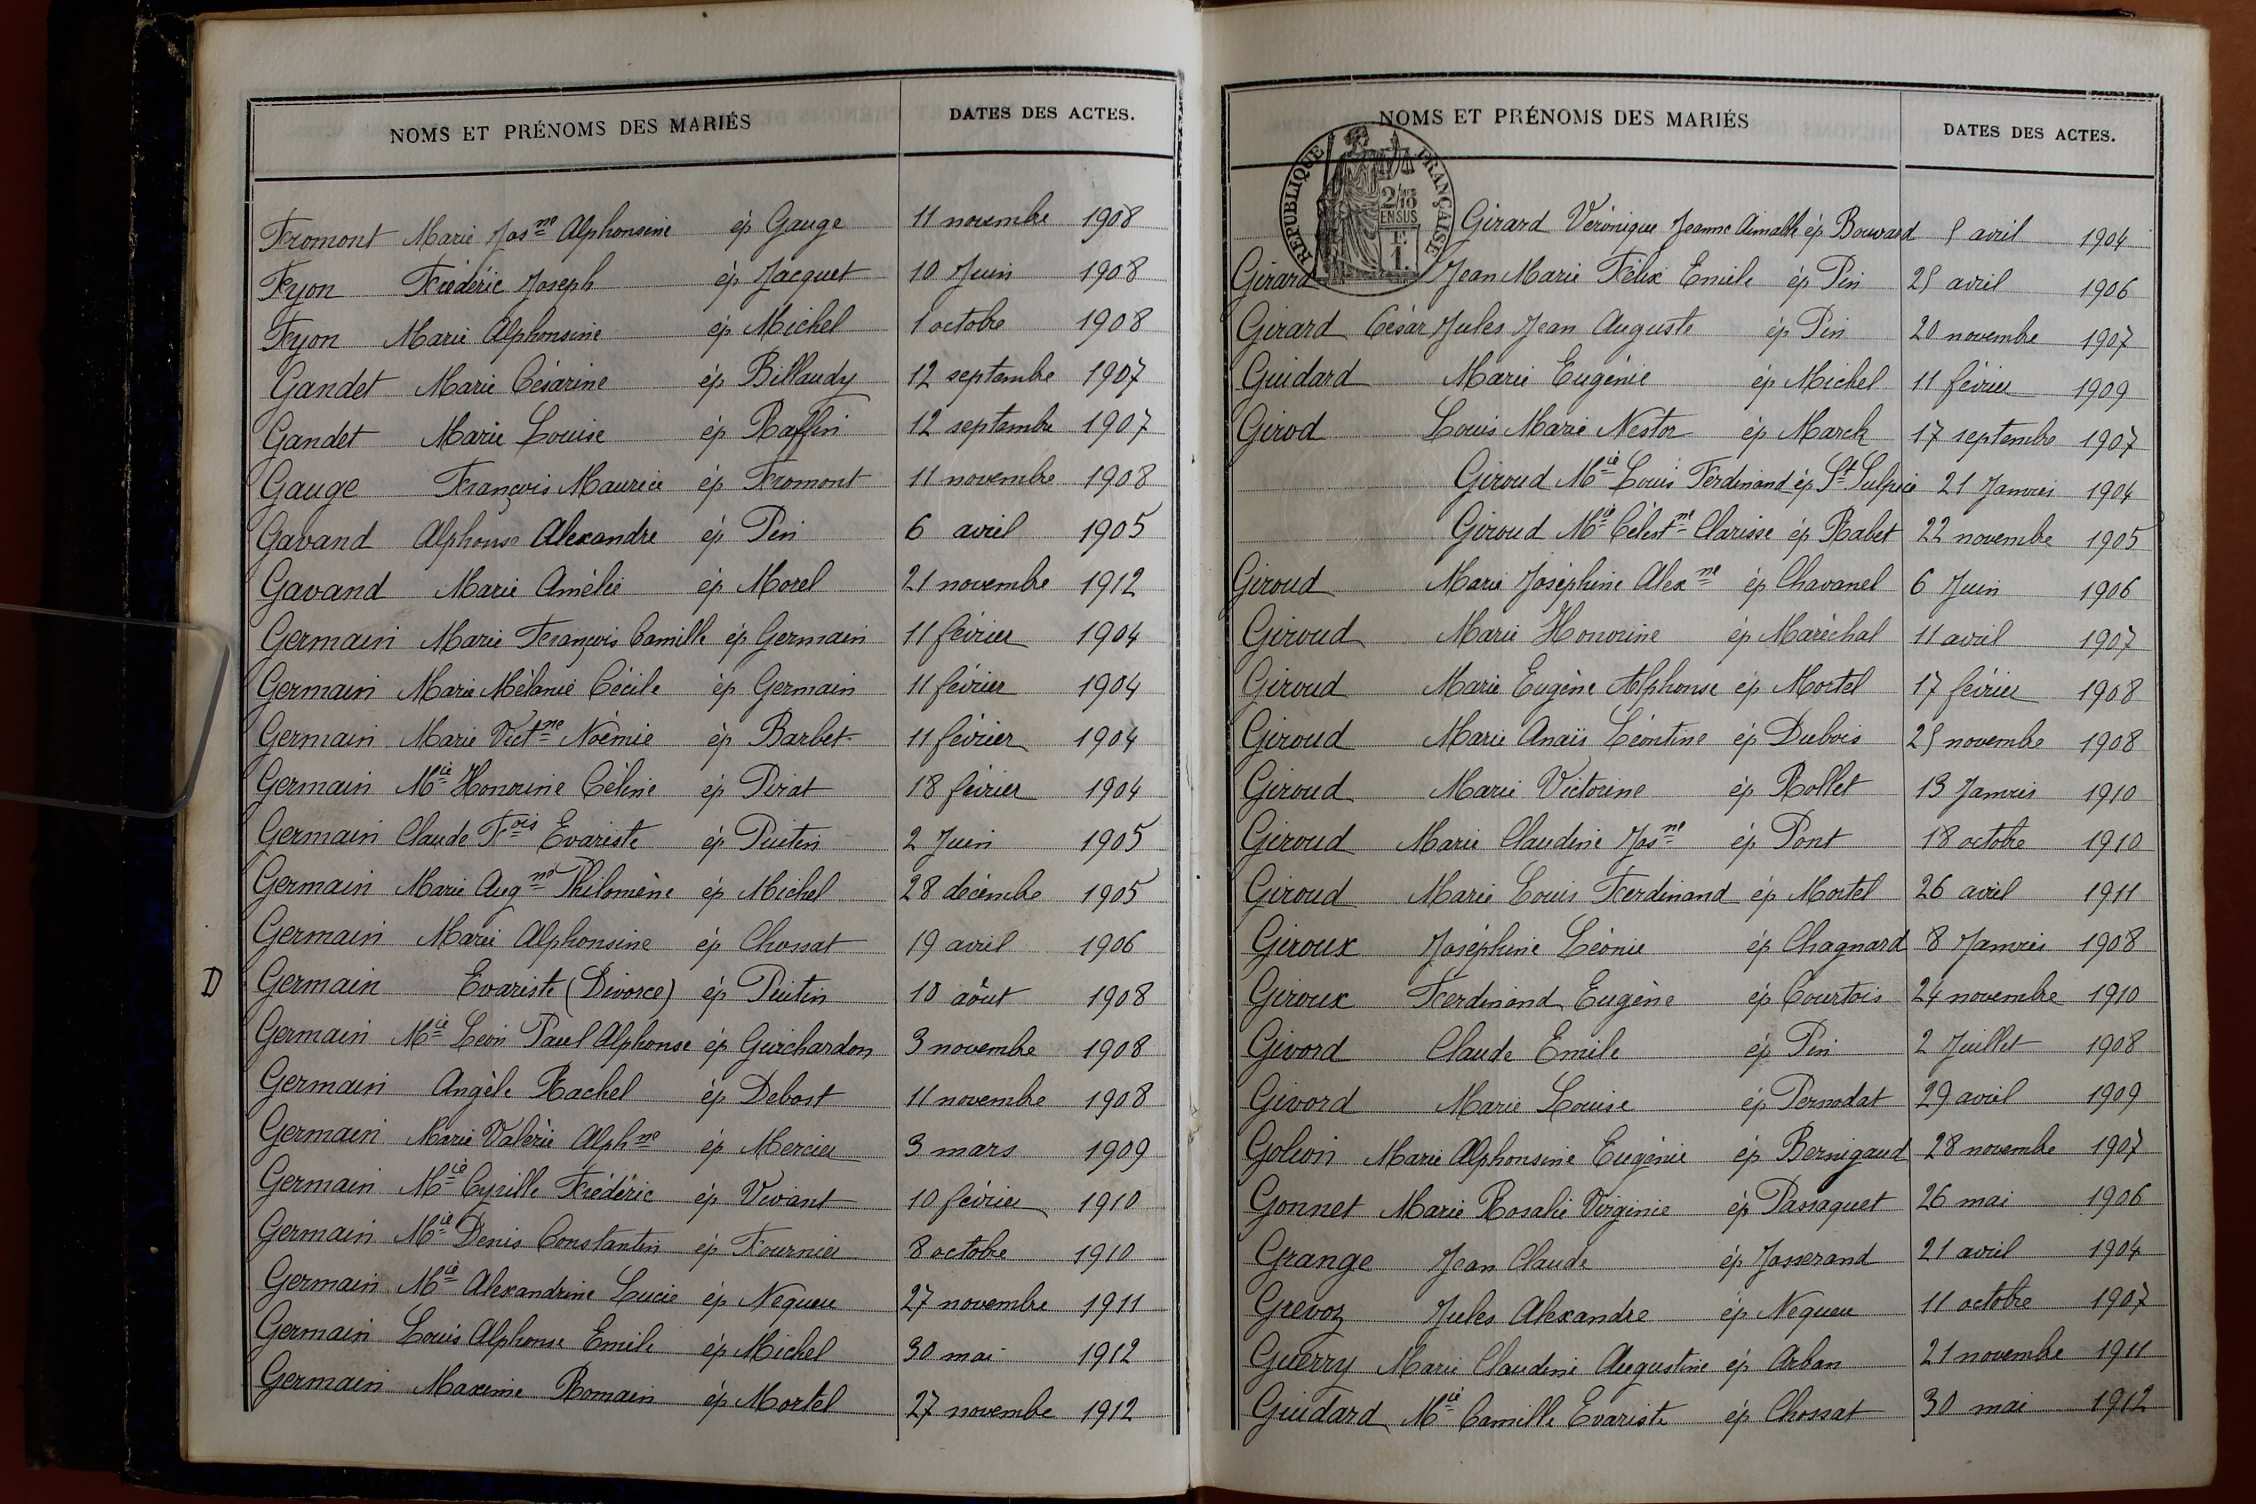 NOMS ET PRÉNOMS DES MARIÉS DATES DES ACTES.
Fromont Marie Jos^ne Alphonsine ép Gauge 11 novembre 1908
Fyon Frédéric Joseph ép Jacquet 10 Juin 1908
Fyon Marie Alphonsine ép Michel 1 octobre 1908
Gandet Marie Césarine ép Billaudy 12 septembre 1907
Gandet Marie Louise ép Raffin 12 septembre 1907
Gauge François Maurice ép Fromont 11 novembre 1908
Gavand Alphonse Alexandre ép Pin 6 avril 1905
Gavand Marie Amélie ép Morel 21 novembre 1912
Germain Marie François Camille ép Germain 11 février 1904
Germain Marie Mélanie Cécile ép Germain 11 février 1904
Germain Marie Vict^ne Noémie ép Barbet 11 février 1904
Germain M^ie Honorine Céline ép Pirat 18 février 1904
Germain Claude F^ois Evariste ép Puitin 2 Juin 1905
Germain Marie Aug^ne Philomène ép Michel 28 décembre 1905
Germain Marie Alphonsine ép Chossat 19 avril 1906
D Germain Evariste (Divorce) ép Puitin 10 août 1908
Germain M^ie Léon Paul Alphonse ép Guichardon 3 novembre 1908
Germain Angèle Rachel ép Debost 11 novembre 1908
Germain Marie Valérie Alph^ne ép Mercier 3 mars 1909
Germain M^ie Cyrille Frédéric ép Vivant 10 février 1910
Germain M^ie Denis Constantin ép Fournier 8 octobre 1910
Germain M^ie Alexandrine Lucie ép Nequeu 27 novembre 1911
Germain Louis Alphonse Emile ép Michel 30 mai 1912
Germain Maxime Romain ép Mortel 27 novembre 1912
NOMS ET PRÉNOMS DES MARIÉS DATES DES ACTES.
RÉPUBLIQUE FRANÇAISE
2/10
EN SUS
1 F.
Girard Véronique Jeanne Aimable ép Bouvard 5 avril 1904
Girard Jean Marie Félix Emile ép Pin 25 avril 1906
Girard César Jules Jean Auguste ép Pin 20 novembre 1907
Guidard Marie Eugénie ép Michel 11 février 1909
Girod Louis Marie Nestor ép March 17 septembre 1907
Giroud M^ie Louis Ferdinand ép S^t Sulpice 21 Janvier 1904
Giroud M^ie Célest^ne Clarisse ép Rabet 22 novembre 1905
Giroud Marie Joséphine Alex^ne ép Chavanel 6 Juin 1906
Giroud Marie Honorine ép Maréchal 11 avril 1907
Giroud Marie Eugène Alphonse ép Mortel 17 février 1908
Giroud Marie Anaïs Léontine ép Dubois 25 novembre 1908
Giroud Marie Victorine ép Rollet 13 Janvier 1910
Giroud Marie Claudine Jos^ne ép Pont 18 octobre 1910
Giroud Marie Louis Ferdinand ép Mortel 26 avril 1911
Giroux Joséphine Léonie ép Chagnard 8 Janvier 1908
Giroux Ferdinand Eugène ép Courtois 24 novembre 1910
Givord Claude Emile ép Pin 2 Juillet 1908
Givord Marie Louise ép Pernodat 29 avril 1909
Golion Marie Alphonsine Eugénie ép Bernigaud 28 novembre 1907
Gonnet Marie Rosalie Virginie ép Passaquet 26 mai 1906
Grange Jean Claude ép Josserand 21 avril 1904
Grevoz Jules Alexandre ép Nequeu 11 octobre 1907
Guerry Marie Claudine Augustine ép Arban 21 novembre 1911
Guidard M^ie Camille Evariste ép Chossat 30 mai 1912